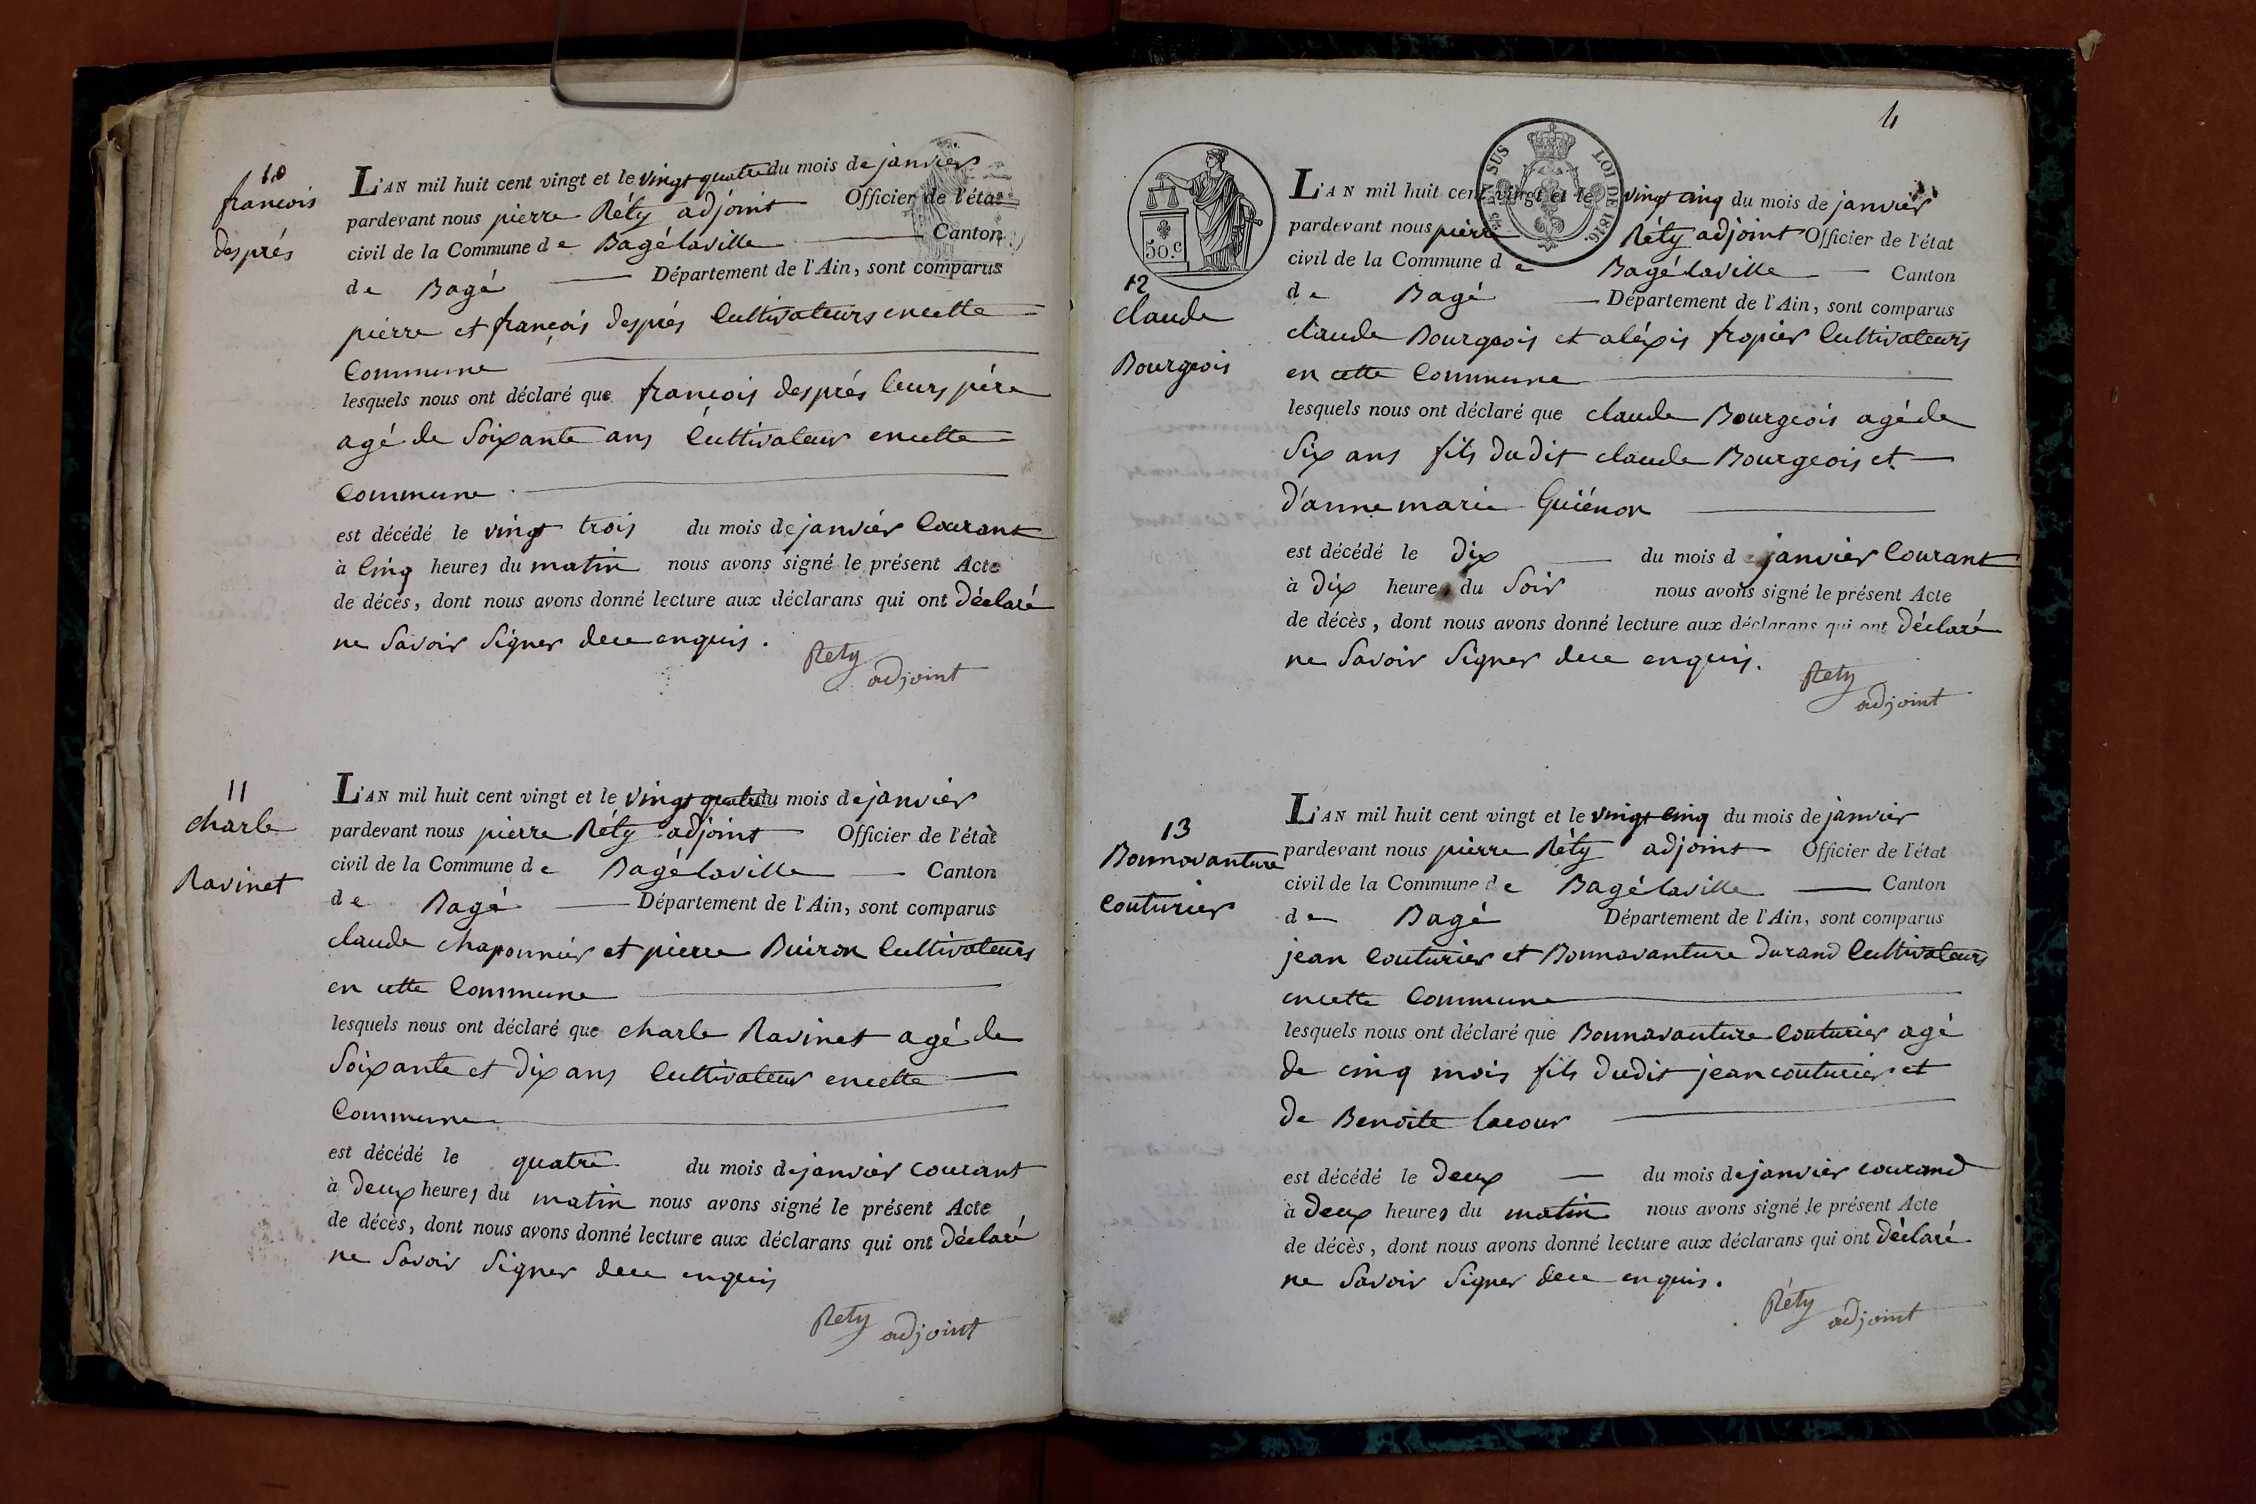 10
françois
després
L'AN mil huit cent vingt et le vingt quatre du mois de janvier
pardevant nous pierre Réty adjoint Officier de l'état
civil de la Commune de Bagélaville Canton
de Bagé Département de l'Ain, sont comparus
pierre et françois després Cultivateurs encette
Commune
lesquels nous ont déclaré que françois després leurs père
agé de Soixante ans Cultivateur encette
Commune
est décédé le vingt trois du mois de janvier Courant
à Cinq heures du matin nous avons signé le présent Acte
de décès, dont nous avons donné lecture aux déclarans qui ont Déclaré
ne Savoir Signer dece enquis.
Rety
adjoint
11
charle
Ravinet
L'AN mil huit cent vingt et le vingt quatre du mois de janvier
pardevant nous pierre Réty adjoint Officier de l'état
civil de la Commune de Bagélaville Canton
de Bagé Département de l'Ain, sont comparus
claude chaponnier et pierre Buiron Cultivateurs
en cette Commune
lesquels nous ont déclaré que charle Ravinet agé de
Soixante et Dix ans Cultivateur encette
Commune
est décédé le quatre du mois de janvier courant
à Deux heures du matin nous avons signé le présent Acte
de décès, dont nous avons donné lecture aux déclarans qui ont Déclaré
ne Savoir Signer dece enquis
Rety
adjoint
4
50.c
EN SUS
LOI DE 1816.
12
claude
Bourgeois
L'AN mil huit cent vingt et le vingt cinq du mois de janvier
pardevant nous pierre Réty adjoint Officier de l'état
civil de la Commune de Bagélaville Canton
de Bagé Département de l'Ain, sont comparus
claude Bourgeois et aléxis fropier Cultivateurs
en cette Commune
lesquels nous ont déclaré que claude Bourgeois agé de
Six ans fils dudit claude Bourgeois et
d'anne marie Guiénon
est décédé le Dix du mois de janvier Courant
à Dix heures du Soir nous avons signé le présent Acte
de décès, dont nous avons donné lecture aux déclarans qui ont Déclaré
ne Savoir Signer dece enquis.
Rety
adjoint
13
Bonnavanture
Couturier
L'AN mil huit cent vingt et le vingt cinq du mois de janvier
pardevant nous pierre Réty adjoint Officier de l'état
civil de la Commune de Bagélaville Canton
de Bagé Département de l'Ain, sont comparus
jean Couturier et Bonnavanture Durand Cultivateurs
encette Commune
lesquels nous ont déclaré que Bonnavanture Couturier agé
de cinq mois fils dudit jean couturier et
de Benoite Lacour
est décédé le Deux du mois de janvier courand
à Deux heures du matin nous avons signé le présent Acte
de décès, dont nous avons donné lecture aux déclarans qui ont Déclaré
ne Savoir Signer dece enquis.
Réty
adjoint